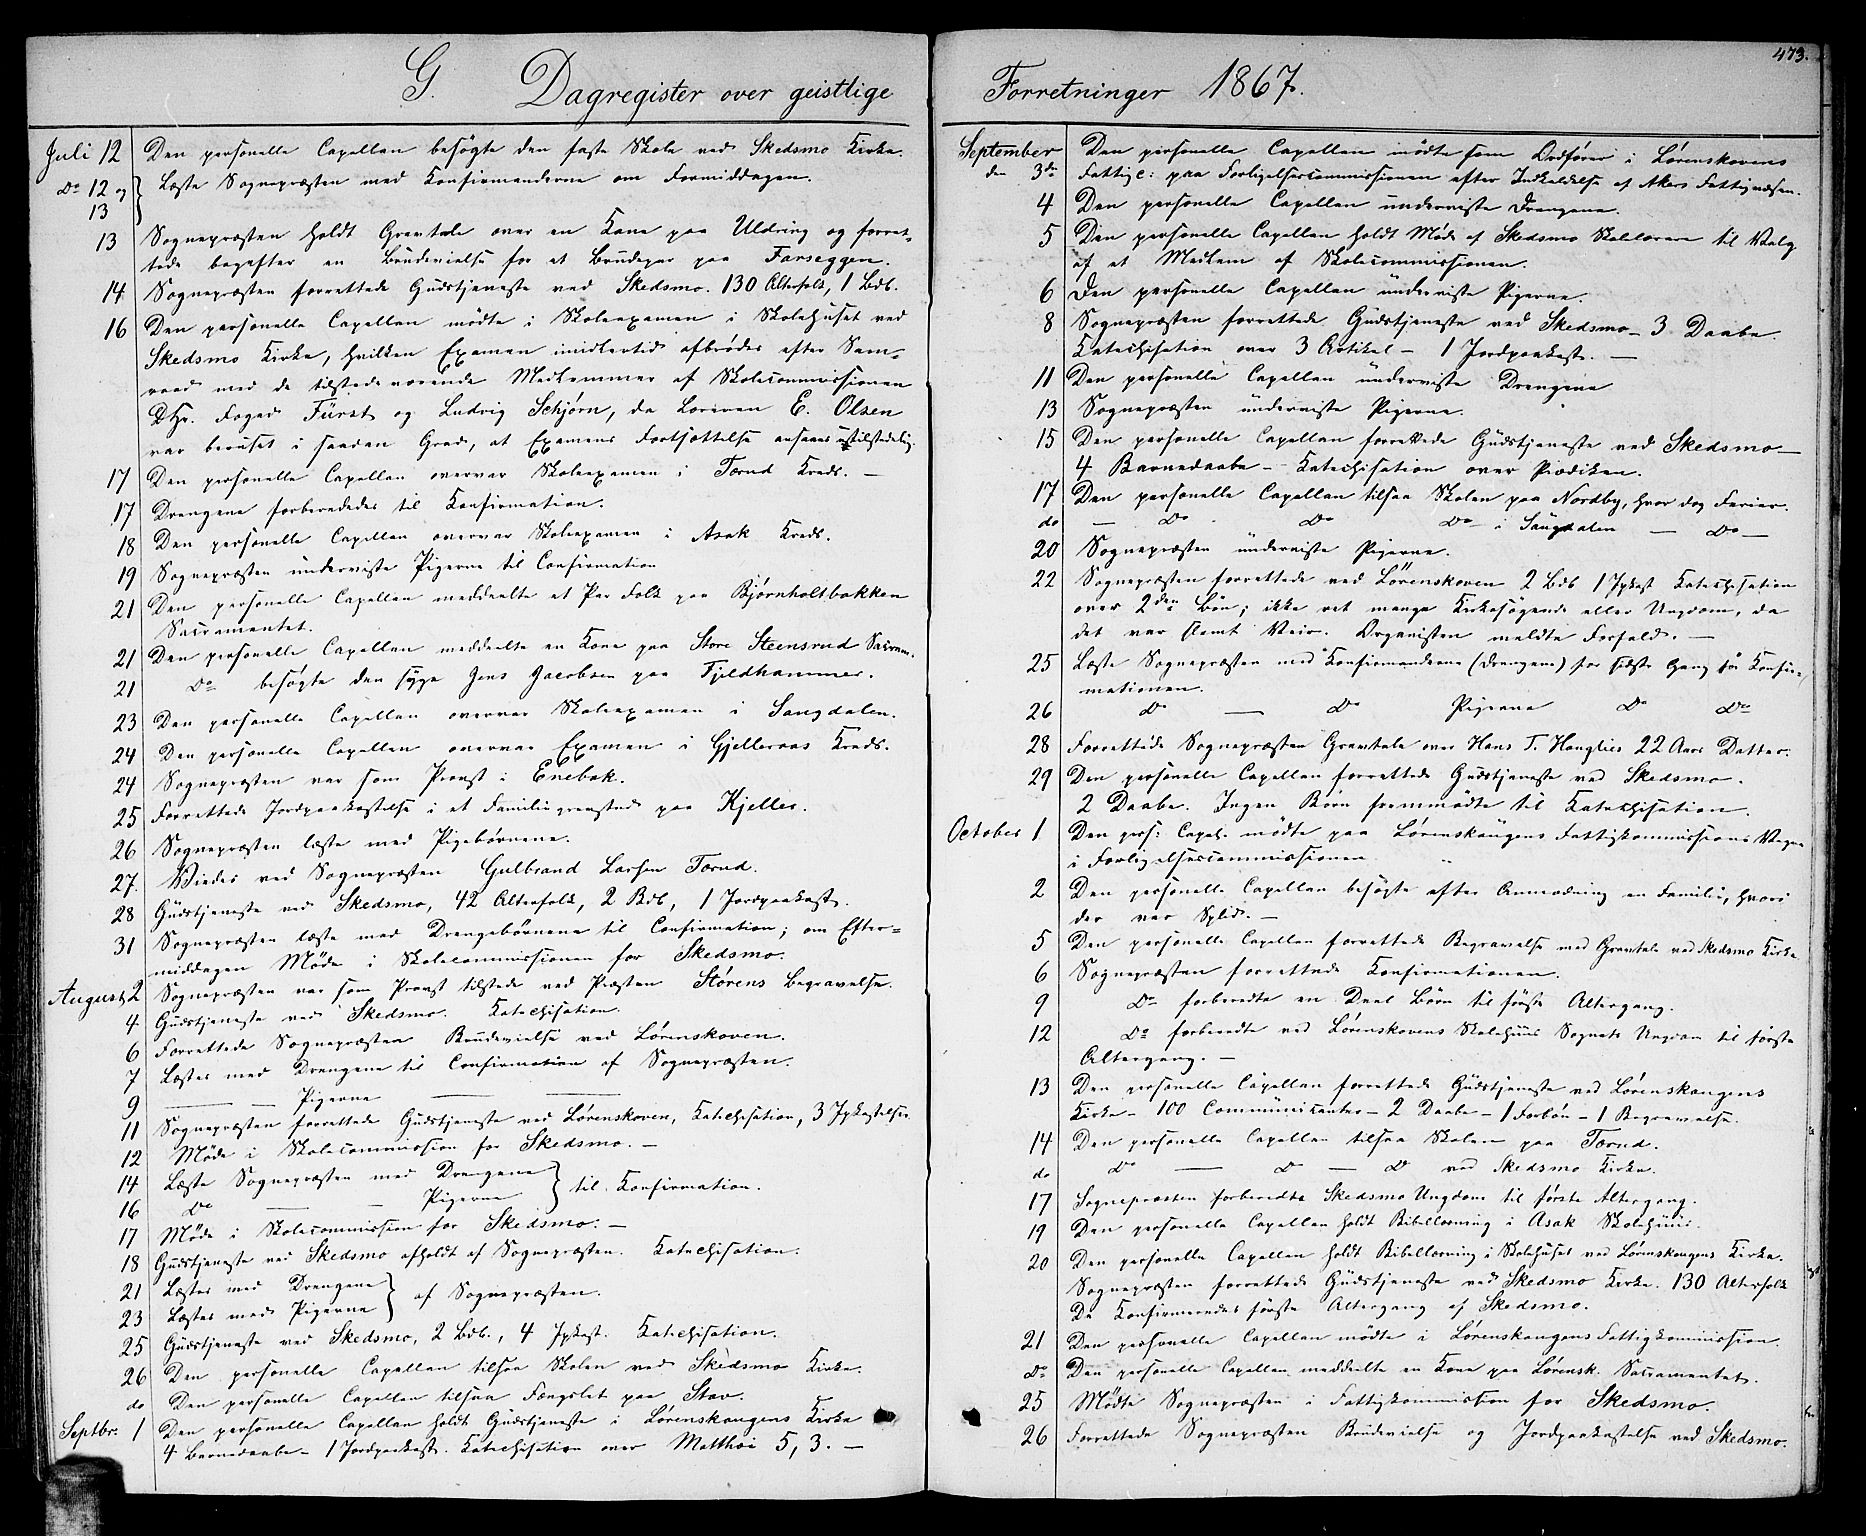 473.
G. Dagregister over geistlige Forretninger 1867.
Juli 12 Den personelle Capellan besøgte den faste Skole ved Skedsmo Kirke.
Do 12 og 13 Læste Sognepræsten med Konfirmanderne om Formiddagen.
13 Sognepræsten holdt Gravtale over en Kone paa Uldring og forret-
tede bagefter en Brudevielse for et Brudepar paa Farseggen.
14 Sognepræsten forrettede Gudstjeneste ved Skedsmo. 130 Altersfolk, 1 Bdb.
16 Den personelle Capellan mødte i Skoleexamen i Skolehuset ved
Skedsmo Kirke, hvilken Examen imidlertid afbrødes efter Sam-
raad med de tilstedeværende Medlemmer af Skolecommissionen
DHr. Foged Fürst og Ludvig Schjørn, da Læreren E. Olsen
var beruset i saadan Grad, at Examens Fortsættelse ansaaes utilstedelig.
17 Den personelle Capellan overvar Skoleexamen i Tærud Kreds. —
17 Drengene forberededes til Konfirmation.
18 Den personelle Capellan overvar Skoleexamen i Asak Kreds.
19 Sognepræsten underviste Pigerne til Confirmation
21 Den personelle Capellan meddeelte et Par Folk paa Bjørnholtbakken
Sacramentet.
21 Den personelle Capellan meddeelte en Kone paa Store Steensrud Sacram.
21 Do besøgte den syge Jens Jacobsen paa Fjeldhammer.
23 Den personelle Capellan overvar Skoleexamen i Saugdalen.
24 Den personelle Capellan overvar Examen i Gjelleraas Kreds.
24 Sognepræsten var som Provst i Enebak.
25 Forrettede Jordpaakastelse i et Familiegravsted paa Kjeller.
26 Sognepræsten læste med Pigebørnene.
27. Viedes ved Sognepræsten Gulbrand Larsen Tærud.
28 Gudstjeneste ved Skedsmo, 42 Altersfolk, 2 Bdb, 1 Jordpaakast.
31 Sognepræsten læste med Drengebørnene til Confirmation; om Efter-
middagen Møde i Skolecommissionen for Skedsmo.
August 2 Sognepræsten var som Provst tilstede ved Præsten Størens Begravelse.
4 Gudstjeneste ved Skedsmo. Katechisation.
6 Forrettede Sognepræsten Brudevielse ved Lørenskoven.
7 Læstes med Drengene til Confirmation af Sognepræsten.
9 — — Pigerne — —
11 Sognepræsten forrettede Gudstjeneste ved Lørenskoven, Katechisation, 3 Jpkastelser
12 Møde i Skolecommission for Skedsmo. —
14 Læste Sognepræsten med Drengene } til Konfirmation.
16 Do — — Pigerne
17 Møde i Skolecommission for Skedsmo. —
18 Gudstjeneste ved Skedsmo afholdt af Sognepræsten. Katechisation.
21 Læstes med Drengene } af Sognepræsten.
23 Læstes med Pigerne
25 Gudstjeneste ved Skedsmo, 2 Bdb., 4 Jpkast. Katechisation.
26 Den personelle Capellan tilsaa Skolen ved Skedsmo Kirke.
do Den personelle Capellan tilsaa Fængslet paa Stav.
Septbr. 1 Den personelle Capellan holdt Gudstjeneste i Lørenskougens Kirke
4 Barnedaabe - 1 Jordpaakast. Katechisation over Matthæi 5, 3. —
September den 3die Den personelle Capellan mødte som Ordfører i Lørenskovens
Fattigc: paa Forligelsescommissionen efter Indkaldelse af Akers Fattigvæsen.
4 Den personelle Capellan underviste Drengene.
5 Den personelle Capellan holdt Møde af Skedsmo Skolelærere til Valg
af et Medlem af Skolecommissionen.
6 Den personelle Capellan underviste Pigerne.
8 Sognepræsten forrettede Gudstjeneste ved Skedsmo – 3 Daabe.
Katechisation over 3 Artikel – 1 Jordpaakast. —
11 Den personelle Capellan underviste Drengene
13 Sognepræsten underviste Pigerne.
15 Den personelle Capellan forrettede Gudstjeneste ved Skedsmo —
4 Barnedaabe – Katechisation over Prædiken.
17 Den personelle Capellan tilsaa Skolen paa Nordby, hvor dog Ferier.
do — Do Do Do i Saugdalen — Do —
20 Sognepræsten underviste Pigerne.
22 Sognepræsten forrettede ved Lørenskoven 2 Bdb 1 Jpkast Katechisation
over 2den Bøn; ikke ret mange Kirkesøgende eller Ungdom, da
det var slemt Veir. Organisten meldte Forfald. —
25 Læste Sognepræsten med Konfirmanderne (Drengene) for sidste Gang før Konfir-
mationen.
26 Do — Do Pigerne Do Do
28 Forrettede Sognepræsten Gravtale over Hans T. Hauglies 22 Aars Datter.
29 Den personelle Capellan forrettede Gudstjeneste ved Skedsmo.
2 Daabe. Ingen Børn fremmødte til Katechisation.
October 1 Den pers: Capel. mødte paa Lørenskougens Fattigkommissions Vegne
i Forligelsescommissionen
2 Den personelle Capellan besøgte efter Anmodning en Familie, hvori
der var Splid. —
5 Den personelle Capellan forrettede Begravelse med Gravtale ved Skedsmo Kirke
6 Sognepræsten forrettede Konfirmationen.
9 Do forberedte en Deel Børn til første Altergang.
12 Do forberedte ved Lørenskovens Skolehuus Sognets Ungdom til første
Altergang. —
13 Den personelle Capellan forrettede Gudstjeneste ved Lørenskougens
Kirke – 100 Communikanter – 2 Daabe – 1 Forbøn – 1 Begravelse.
14 Den personelle Capellan tilsaa Skolen paa Tærud.
do Do — Do — Do ved Skedsmo Kirke.
17 Sognepræsten forberedte Skedsmo Ungdom til første Altergang.
19 Den personelle Capellan holdt Bibellæsning i Asak Skolehuus.
20 Den personelle Capellan holdt Bibellæsning i Skolehuset ved Lørenskougens Kirke.
Sognepræsten forrettede Gudstjeneste ved Skedsmo Kirke. 130 Altersfolk
De Konfirmeredes første Altergang af Skedsmo.
21 Den personelle Capellan mødte i Lørenskougens Fattigkommission.
Do Den personelle Capellan meddeelte en Kone paa Lørensk. Sacramentet.
25 Mødte Sognepræsten i Fattigkommission for Skedsmo.
26 Forrettede Sognepræsten Brudevielse og Jordpaakastelse ved Skedsmo.